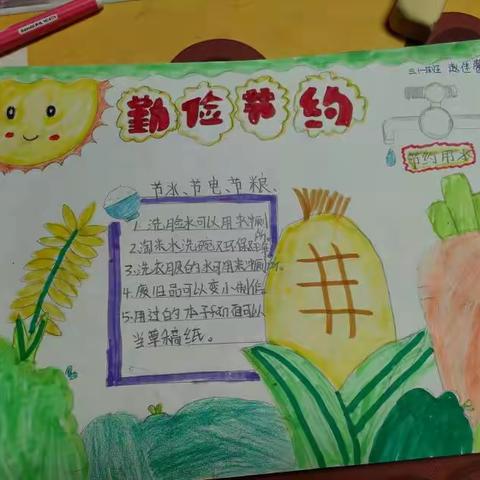 三(一)班 赵佳
勤俭节约
节约用水
节水、节电、节粮、
1. 洗脸水可以用来冲厕所。
2. 淘米水洗碗又环保
3. 洗衣服的水可用来冲厕所。
4. 废旧品可以变小制作。
5. 用过的本子切面可以
当草稿纸。